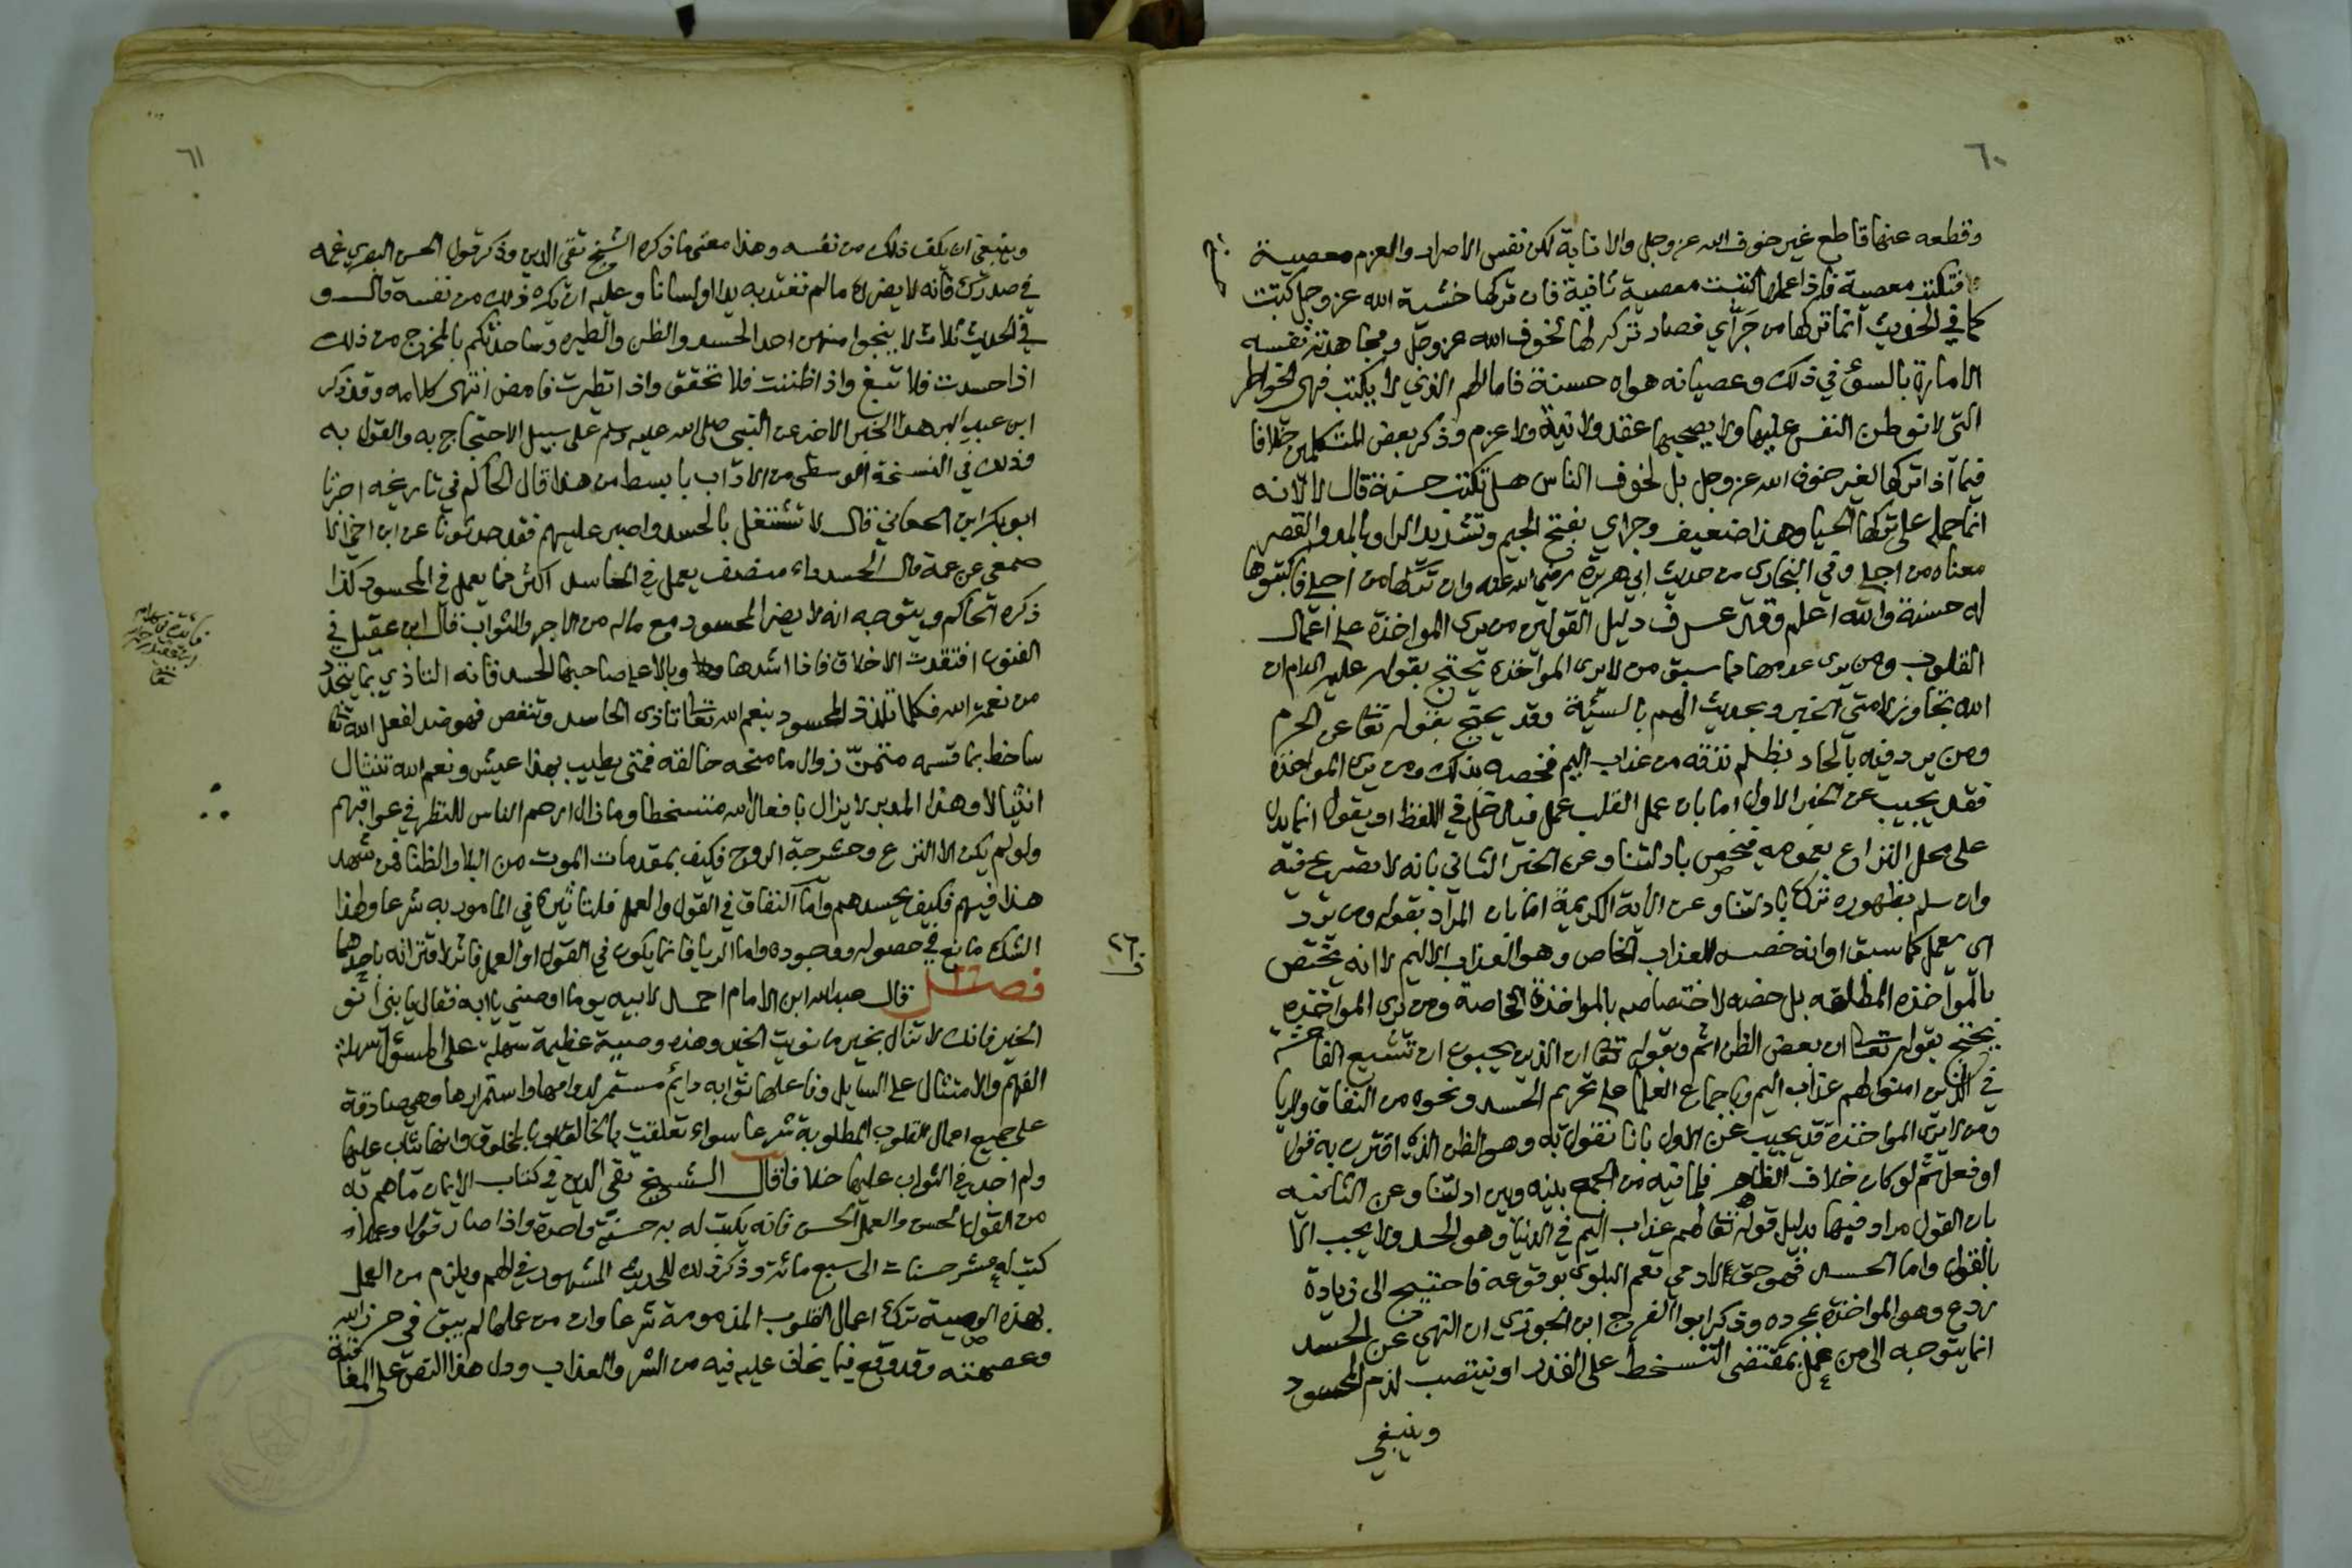 ٦٠
وقطعه عنها قاطع غير خوف الله عز وجل والانابة لكن نفس الاصرار والعزم معصية
فتكتب معصية فاذا عملها كتبت معصية ثانية فان تركها خشية الله عز وجل كتبت
كما في الحديث انما تركها من جَرَّاي فصار تركه لها لخوف الله عز وجل ومجاهدته نفسه
الامارة بالسوء في ذلك وعصيانه هواه حسنة فاما الهم الذي لا يكتب فهي الخواطر
التي لا توطن النفس عليها ولا يصحبها عقد ولا نية ولا عزم وذكر بعض المتكلمين خلافا
فيما اذا تركها لغير خوف الله عز وجل بل لخوف الناس هل تكتب حسنة قال لا لانه
انما حمله على تركها الحيا وهذا ضعيف وجراي بفتح الجيم وتشديد الراء وبالمد والقصر
معناه من اجلي وفي البخاري من حديث ابي هريرة رضي الله عنه وان تركها من اجلي فاكتبوها
له حسنة والله اعلم وقد عرف دليل القولين من يرى المواخذة على اعمال
القلوب ومن يرى عدمها مما سبق من لا يرى المواخذة يحتج بقوله عليه السلام ان
الله تجاوز لامتي الخبر وبحديث الهم بالسيئة وقد يحتج بقوله تعا عن الحرم
ومن يرد فيه بالحاد بظلم نذقه من عذاب اليم فخصه بذلك ومن يرى المواخذة
فقد يجيب عن الخبر الاول اما بان عمل القلب عمل فيدخل في اللفظ او يقول انما يدل
على محل النزاع بعمومه فنخص بادلتنا وعن الخبر الثاني بانه لا تصريح فيه
وان سلم بظهوره ترك بادلتنا وعن الاية الكريمة اما بان المراد بقوله ومن يرد
اي يعمل كما سبق او انه خصه بالعذاب الخاص وهو العذاب الاليم لا انه يختص
بالمواخذة المطلقة بل خصه لاختصاصه بالمواخذة الخاصة ومن يرى المواخذة
يحتج بقوله تعا ان بعض الظن اثم وبقوله تعا ان الذين يحبون ان تشيع الفاحشة
في الذين امنوا لهم عذاب اليم وباجماع العلما على تحريم الحسد ونحوه من النفاق والريا
ومن لا يرى المواخذة قد يجيب عن الاول بانا نقول به وهو الظن الذي اقترن به قول
او فعل ثم لو كان خلاف الظاهر فلما فيه من الجمع بينه وبين ادلتنا وعن الثانية
بان القول مراد فيها بدليل قوله تعا لهم عذاب اليم في الدنيا وهو الحد ولا يجب الا
بالقول واما الحسد فهو حق الادمي تعم البلوى بوقوعه فاحتيج الى زيادة
ردع وهو المواخذة بمجرده وذكر ابو الفرج ابن الجوزي ان النهي عن الحسد
انما يتوجه الى من عمل بمقتضى التسخط على القدر او ينتصب لذم المحسود
وينبغي
٦١
وينبغي ان يكف ذلك من نفسه وهذا معنى ما ذكره الشيخ تقي الدين وذكر قول الحسن البصري غمه
في صدرك فانه لا يضرك ما لم تعتد به يدا ولسانا وعليه ان يكره ذلك من نفسه قال و
في الحديث ثلاث لا ينجوا منهن احد الحسد والظن والطيرة وساحدثكم بالمخرج من ذلك
اذا حسدت فلا تبغ واذا ظننت فلا تحقق واذا تطيرت فامض انتهى كلامه وقد ذكر
ابن عبد البر هذا الخبر الاخير عن النبي صلى الله عليه وسلم على سبيل الاحتجاج به والقول به
وذلك في النسخة الوسطى من الاداب بابسط من هذا قال الحاكم في تاريخه اخبرنا
ابو بكر ابن الجعابي قال لا تشتغل بالحسد واصبر عليهم فقد حدثونا عن ابن اخي الا
صمعي عن عمه قال الحسد داء منصف يعمل في الحاسد اكثر مما يعمل في المحسود كذا
ذكره الحاكم ويتوجه انه لا يضر المحسود مع ماله من الاجر والثواب قال ابن عقيل في
الفنون افتقدت الاخلاق فاذا اشدها وبالا على صاحبها الحسد فانه التاذي بما يتجدد
من نعمة الله فكلما تلذذ المحسود بنعم الله تعا تاذى الحاسد وتنغص فهو ضد لفعل الله تعا
ساخط بما قسمه متمنّ زوال ما منحه خالقه فمتى يطيب بهذا عيش ونعم الله تنثال
انثيالا وهذا المدبر لا يزال بافعال الله متسخطا وما زال ارحم الناس للنظر في عواقبهم
ولو لم يكن الا النزع وحشرجة الروح فكيف بمقدمات الموت من البلا والضنا فمن شهد
هذا فيهم فكيف يحسدهم واما النفاق في القول والعمل فلتاثيره في المامور به شرعا وهذا
الشك مانع في حصوله ووجوده واما الريا فانما يكون في القول او العمل فاثر لاقترانه باحدهما
٢٦
ف
فصل قال عبد الله ابن الامام احمد لابيه يوما اوصني يا ابه فقال يا بني انو
الخير فانك لا تزال بخير ما نويت الخير وهذه وصية عظيمة سهلة على المسؤل سهلة
الفهم والامتثال على السايل وفاعلها ثوابه دايم مستمر لدوامها واستمرارها وهي صادقة
على جميع اعمال القلوب المطلوبة شرعا سواء تعلقت بالخالق او بالمخلوق وانها يثاب عليها
ولم اجد في الثواب عليها خلافا قال الشيخ تقي الدين في كتاب الايمان ما هم به
من القول الحسن والعمل الحسن فانه يكتب له به حسنة واحدة واذا صار قولا وعملا
كتب له عشر حسنات الى سبع مائة وذكر ذلك للحديث المشهور في الهم ويلزم من العمل
بهذه الوصية ترك اعمال القلوب المذمومة شرعا وان من عملها لم يبق في حرز الله
وعصمته وقد وقع فيما يخاف عليه فيه من الشر والعذاب ودل هذا النص على المعا
قبة